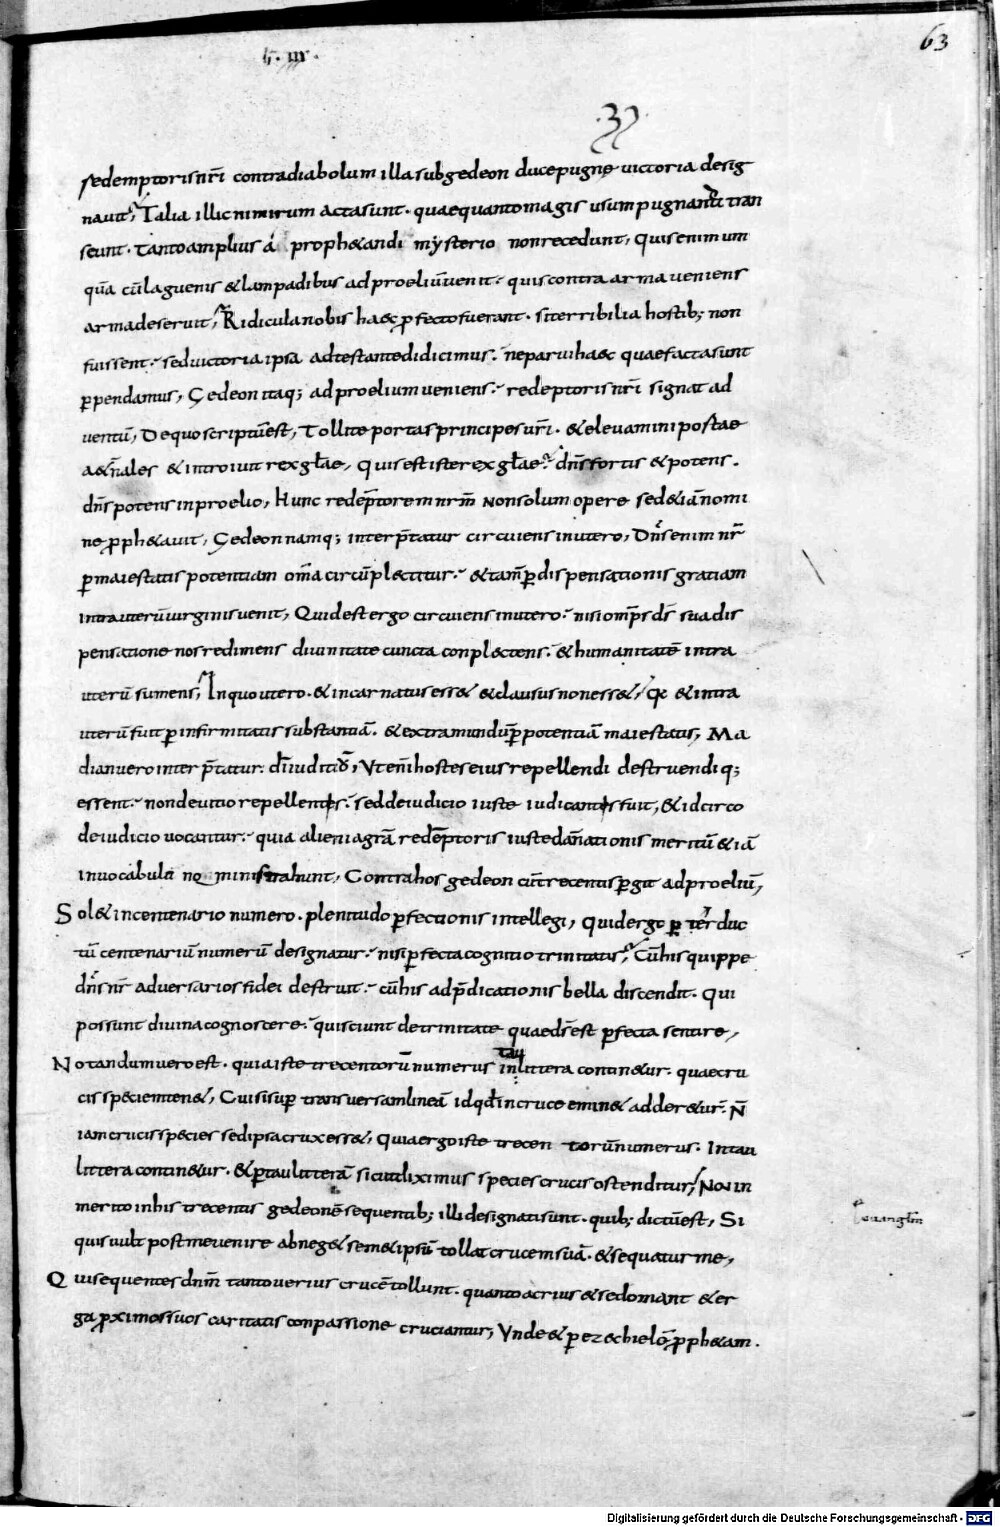 63
redemptoris nr̄i contra diabolum illa sub gedeon duce pugne victoria desig
navit; Talia illic nimirum acta sunt. quae quanto magis usum pugnandi tran
seunt. tanto amplius á prophetandi mysterio non recedunt, Quis enim um
quā cū lagueniś & lampadibus ad proeliū venit. quis contra arma veniens
arma deseruit; Ridicula nobis haec ꝓfecto fuerant. si terribilia hostib; non
fuissent. sed victoria ipsa adtestante didicimus. ne parvi haec quae facta sunt
ꝑpendamus, Gedeon itaq; ad proelium veniens. redēptoris nr̄i signat ad
ventū, De quo scriptū est, Tollite portas principes vr̄i. & elevamini portae
aet̄nales & introivit rex gl̄ae, Quis est iste rex gl̄ae. dn̄s fortis & potens.
dn̄s potens in proelio, Hunc redēptorem nr̄m non solum opere sed & iā nomi
ne ꝓphetavit, Gedeon namq; interp̄tatur circuiens in utero, Dn̄s enim nr̄
ꝑ maiestatis potentiam om̄a circūplectitur. & tam̄ ꝑ dispensationis gratiam
intra uterū virginis venit, Quid est ergo circuiens in utero. nisi omp̄s ds̄ sua dis
pensatione nos redimens divinitate cuncta conplectens. & humanitatē intra
uterū sumens, In quo utero. & incarnatus esset & clausus non esset, Q̄ & intra
uterū fuit ꝑ infirmitatis substantiā. & extra mundū ꝑ potentiā maiestatis, Ma
dian vero interp̄tatur. de iuditio, Ut eni hostes eius repellendi destruendiq;
essent. non de vitio repellentis. sed de iudicio iuste iudicantis fuit, & idcirco
de iudicio vocantur. quia alieni a grā redēptoris iuste dānationis meritū & iā
in vocabulū nominis trahunt, Contra hos gedeon cū trecentis ꝑgit ad proeliū,
Solet in centenario numero. plenitudo ꝑfectionis intellegi, Quid erg ꝑ ter duc
tū centenariū numerū designatur. nisi ꝑfecta cognitio trinitatis, Cū his quippe
dn̄s nr̄ adversarios fidei destruit. cū his ad p̄dicationis bella discendit. Qui
possunt divina cognoscere. qui sciunt de trinitate quae ds̄ est ꝑfecta sentire,
Notandum vero est. quia iste trecentorū numerus in tau littera continetur. quae cru
cis speciem tenet, Cui si suꝑ transversam lineā id qd̄ in cruce eminet adderetur. n̄
iam crucis species sed ipsa crux esset, Quia ergo iste trecentorū numerus. In tau
littera continetur. & ꝑ tau litterā sicut diximus species crucis ostenditur, Non in
merito in his trecentis gedeonē sequentib; illi designati sunt. quib; dictū est, Si
quis vult post me venire abneget semetipsū tollat crucem suā. & sequatur me,
evangl̄m
Qui sequentes dn̄m tanto verius crucē tollunt. quanto acrius & se domant & er
ga ꝓximos suos caritatis conpassione cruciantur, Unde & ꝑ ezechielē ꝓphetam.
Digitalisierung gefördert durch die Deutsche Forschungsgemeinschaft - DFG